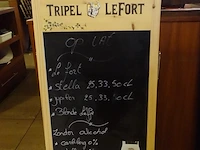 TRIPEL LEFORT
OP VAT
• Le Fort
• Stella 25, 33, 50 cl
• Jupiler 25, 33, 50 cl
• Blonde Leffe
Zonder alcohol